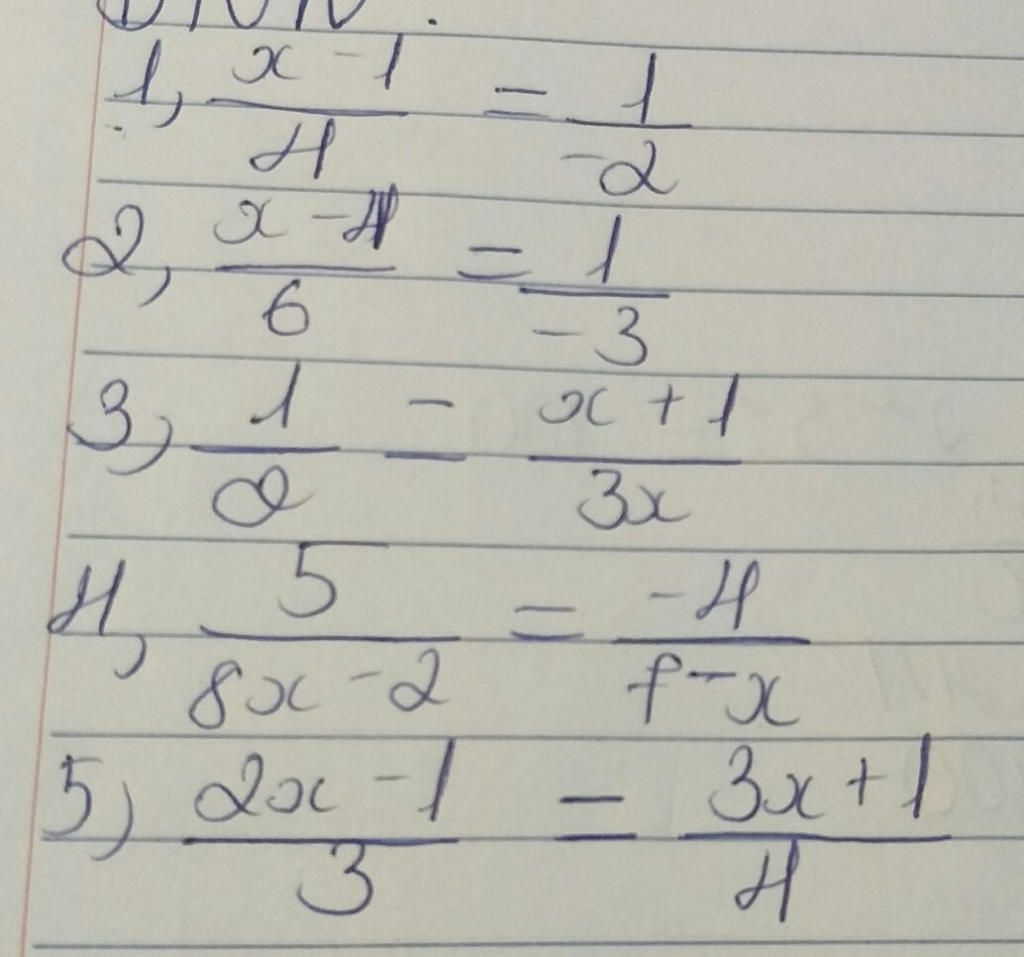 1, x - 1 / 4 = 1 / -2
2, x - 4 / 6 = 1 / -3
3, 1 / 2 = x + 1 / 3x
4, 5 / 8x - 2 = -4 / 7 - x
5, 2x - 1 / 3 = 3x + 1 / 4